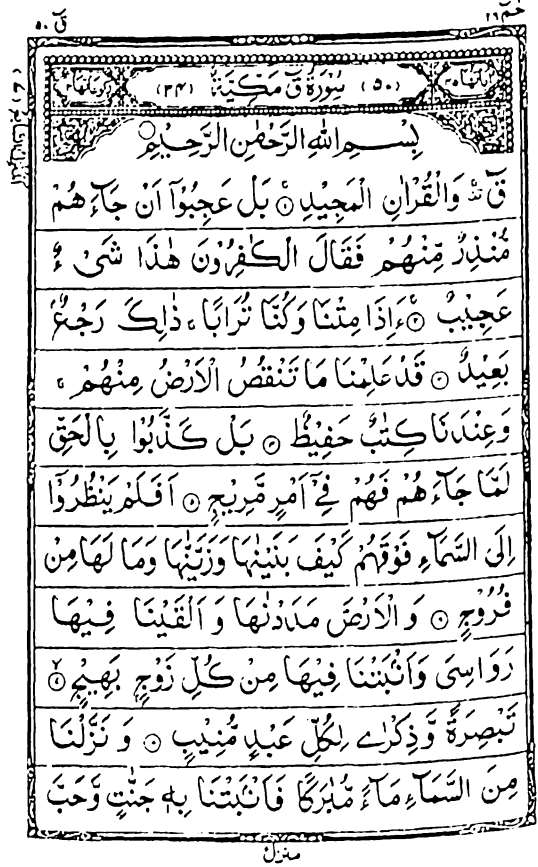 حٰمٓ ٢٦
قٓ ٥٠
(٥٠) سُوْرَةُ قٓ مَكِّيَّةٌ (٣٤)
بِسْمِ اللهِ الرَّحْمٰنِ الرَّحِيْمِ
قٓ وَالْقُرْاٰنِ الْمَجِيْدِ ۝١ بَلْ عَجِبُوْٓا اَنْ جَآءَهُمْ
مُّنْذِرٌ مِّنْهُمْ فَقَالَ الْكٰفِرُوْنَ هٰذَا شَىْءٌ
عَجِيْبٌ ۝٢ ءَاِذَا مِتْنَا وَكُنَّا تُرَابًا ۚ ذٰلِكَ رَجْعٌۢ
بَعِيْدٌ ۝٣ قَدْ عَلِمْنَا مَا تَنْقُصُ الْاَرْضُ مِنْهُمْ ۚ
وَعِنْدَنَا كِتٰبٌ حَفِيْظٌ ۝٤ بَلْ كَذَّبُوْا بِالْحَقِّ
لَمَّا جَآءَهُمْ فَهُمْ فِيْٓ اَمْرٍ مَّرِيْجٍ ۝٥ اَفَلَمْ يَنْظُرُوْٓا
اِلَى السَّمَآءِ فَوْقَهُمْ كَيْفَ بَنَيْنٰهَا وَزَيَّنّٰهَا وَمَا لَهَا مِنْ
فُرُوْجٍ ۝٦ وَالْاَرْضَ مَدَدْنٰهَا وَاَلْقَيْنَا فِيْهَا
رَوَاسِىَ وَاَنْۢبَتْنَا فِيْهَا مِنْ كُلِّ زَوْجٍۢ بَهِيْجٍ ۝٧
تَبْصِرَةً وَّذِكْرٰى لِكُلِّ عَبْدٍ مُّنِيْبٍ ۝٨ وَنَزَّلْنَا
مِنَ السَّمَآءِ مَآءً مُّبٰرَكًا فَاَنْۢبَتْنَا بِهٖ جَنّٰتٍ وَّحَبَّ
منزل